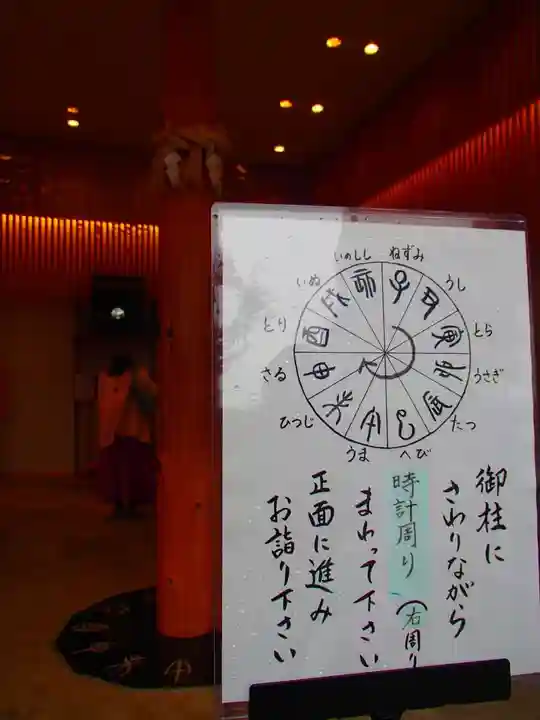 ねずみ
うし
とら
うさぎ
たつ
へび
うま
ひつじ
さる
とり
いぬ
いのしし
子
丑
寅
卯
辰
巳
午
未
申
酉
戌
亥
御柱に
さわりながら
時計周り(右周り
まわって下さい
正面に進み
お詣り下さい